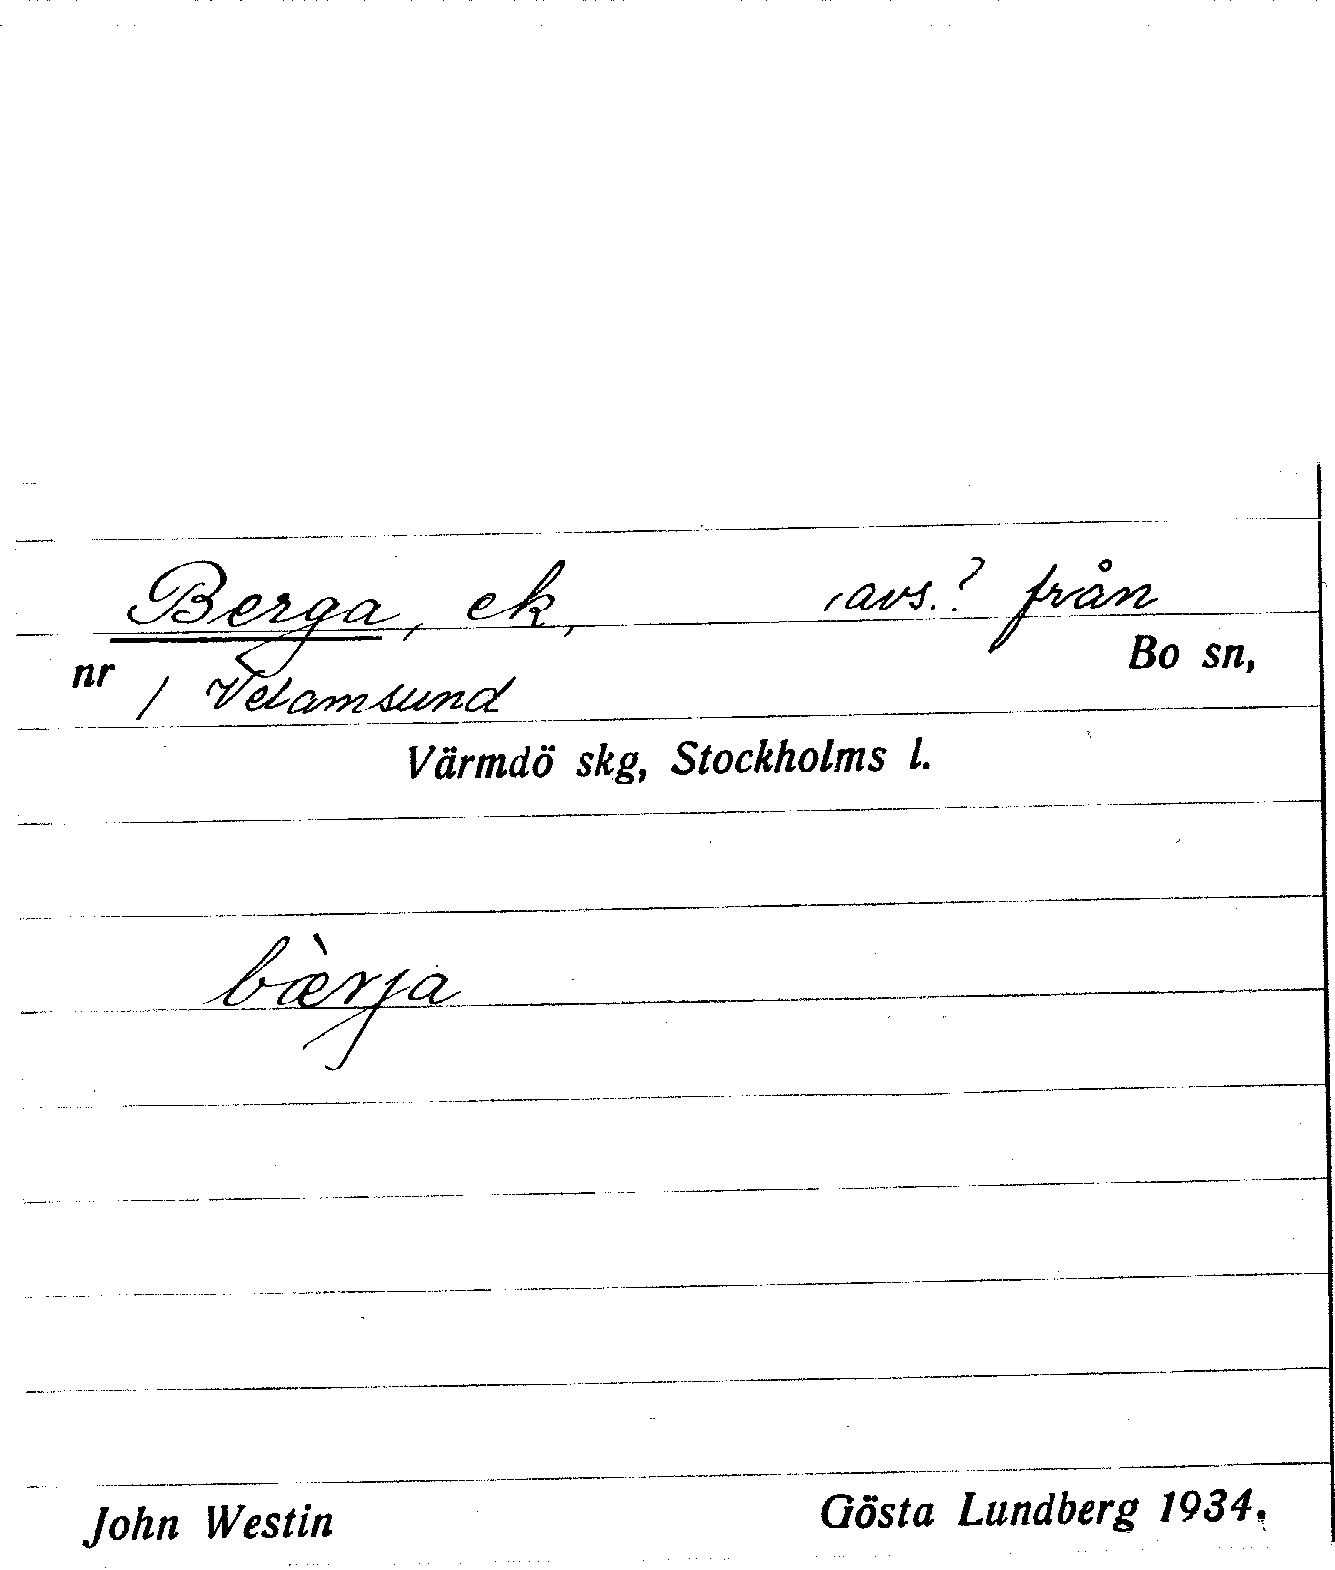 Berga, ek, , avs.? från
nr / Velamsund Bo sn,
Värmdö skg, Stockholms l.
bæ̀rja
John Westin Gösta Lundberg 1934.